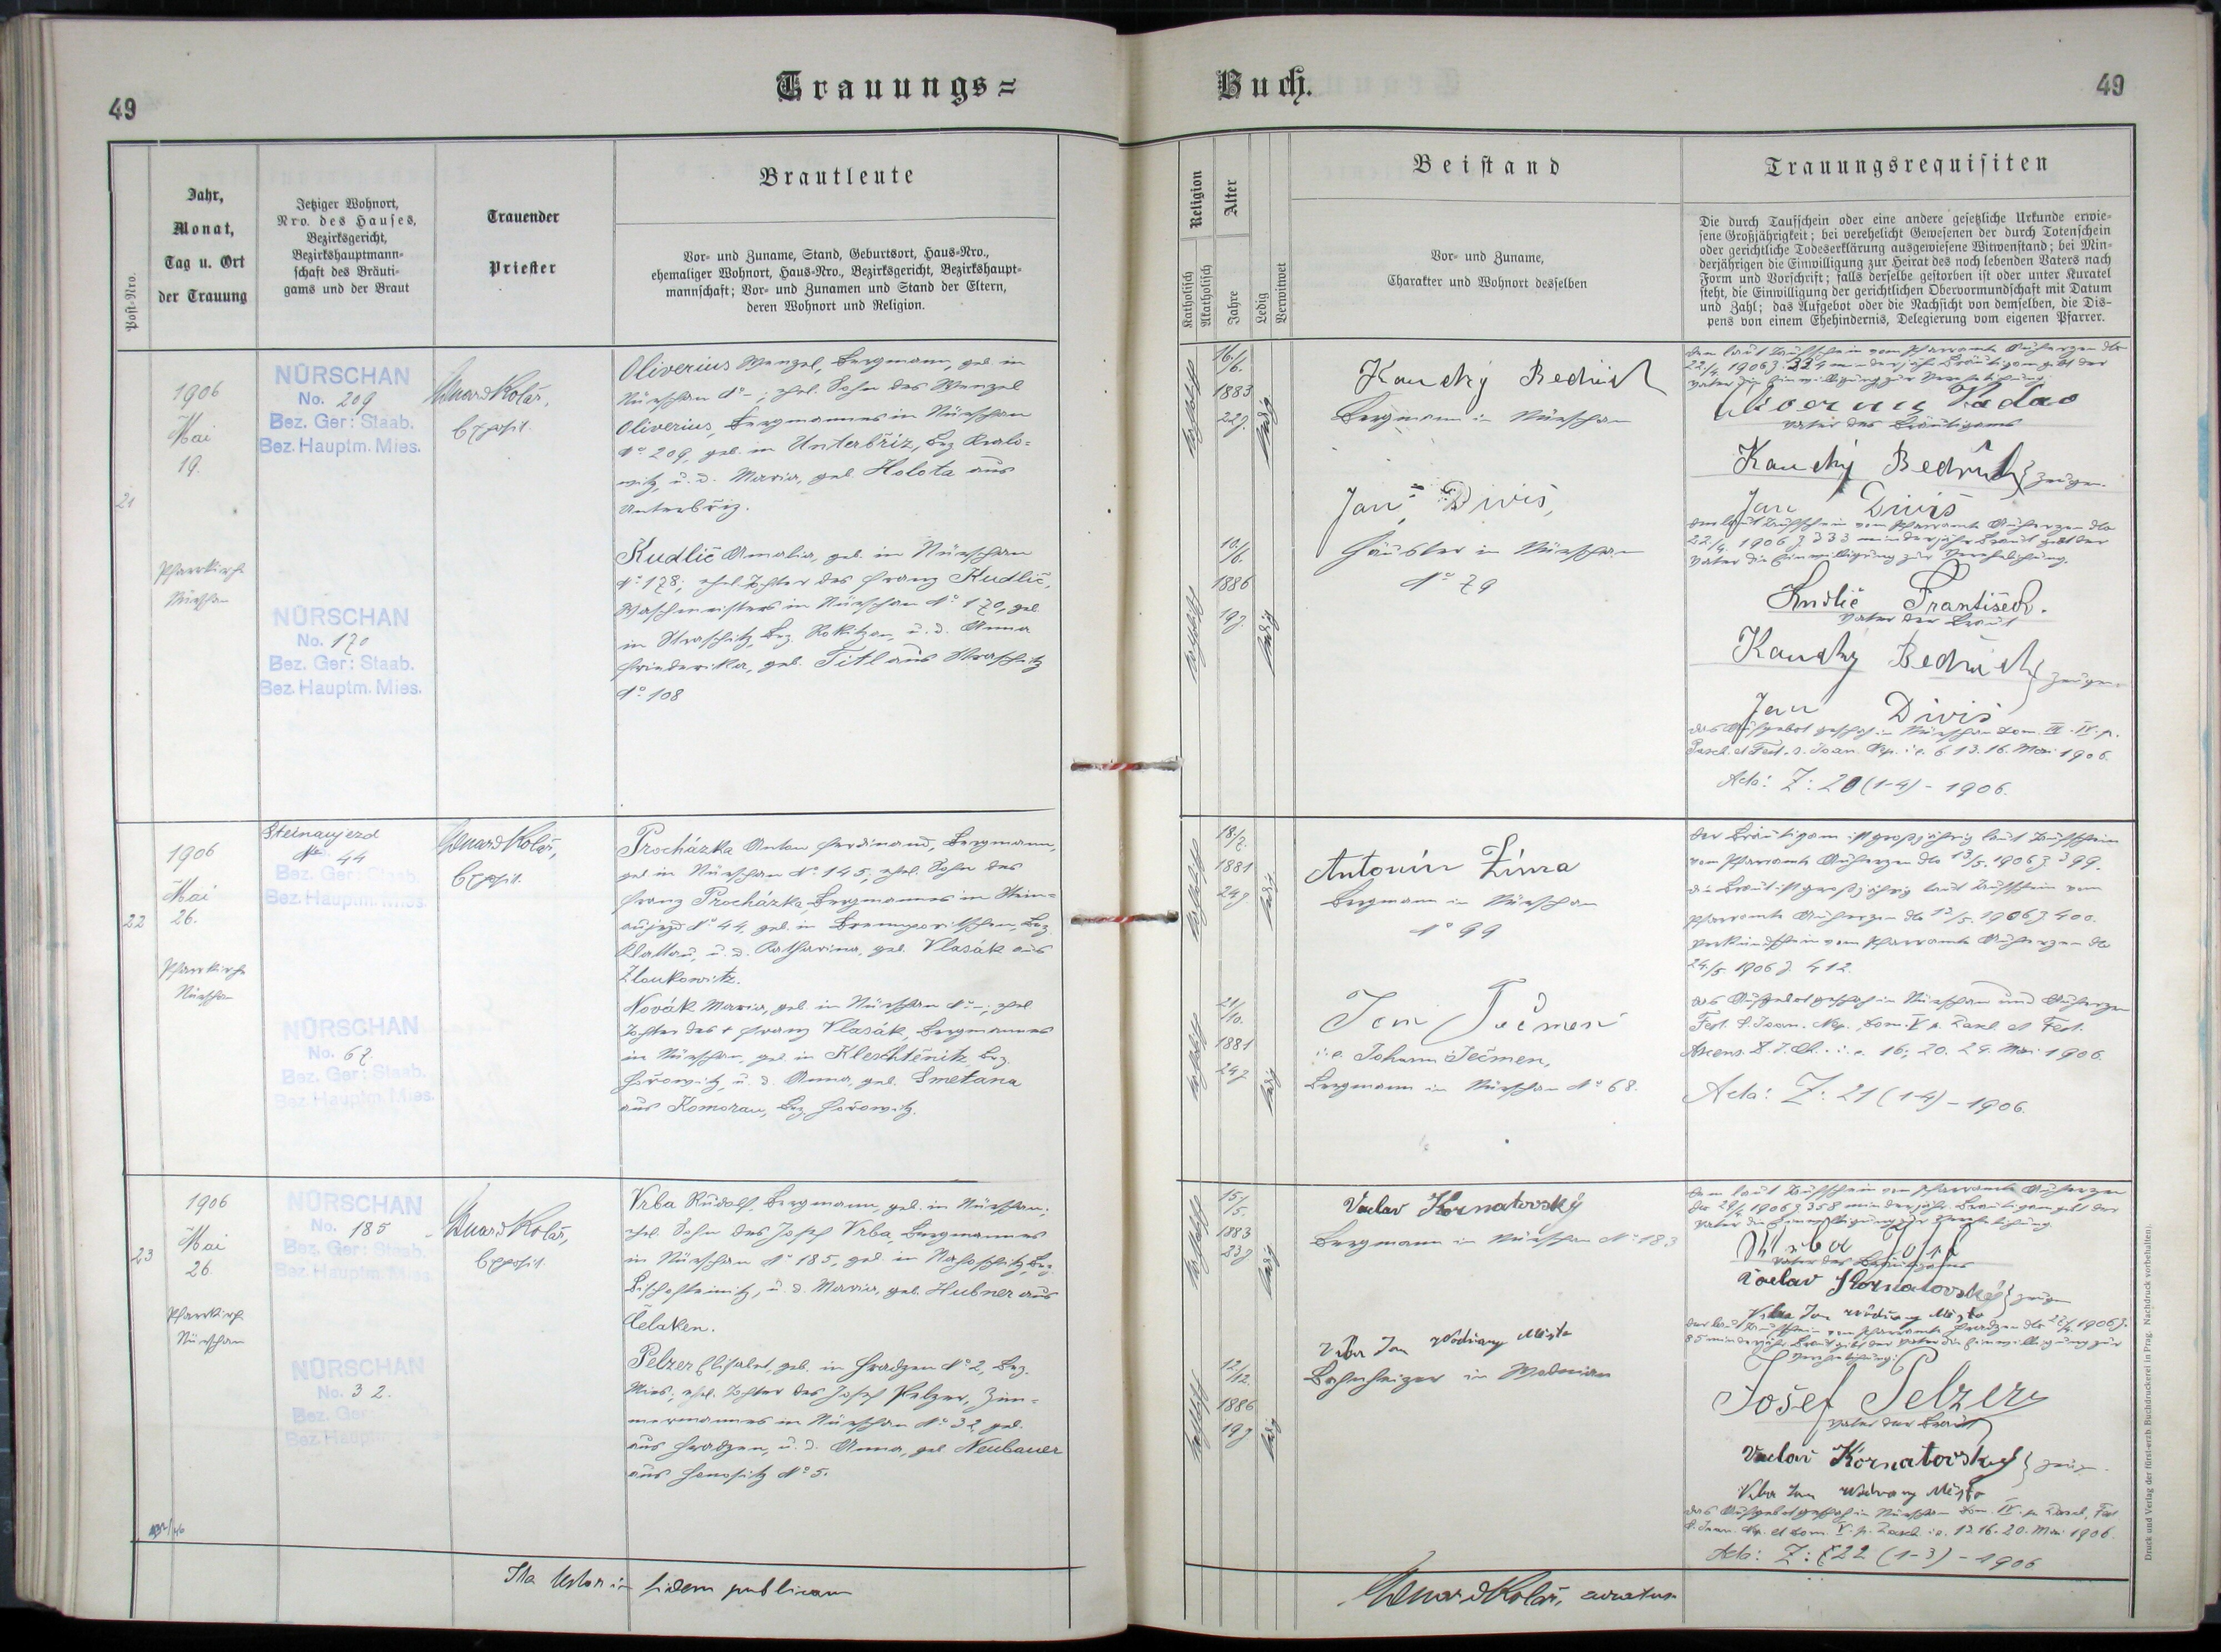 49
Trauungs=
Buch.
49
Post-Nro.
Jahr,
Monat,
Tag u. Ort
der Trauung
Jetziger Wohnort,
Nro. des Hauses,
Bezirksgericht,
Bezirkshauptmann-
schaft des Bräuti-
gams und der Braut
Trauender
Priester
Brautleute
Vor- und Zuname, Stand, Geburtsort, Haus-Nro.,
ehemaliger Wohnort, Haus-Nro., Bezirksgericht, Bezirkshaupt-
mannschaft; Vor- und Zunamen und Stand der Eltern,
deren Wohnort und Religion.
Religion
Katholisch
Akatholisch
Alter
Jahre
Ledig
Verwitwet
Beistand
Vor- und Zuname,
Charakter und Wohnort desselben
Trauungsrequisiten
Die durch Taufschein oder eine andere gesetzliche Urkunde erwie-
sene Großjährigkeit; bei verehelicht Gewesenen der durch Totenschein
oder gerichtliche Todeserklärung ausgewiesene Witwenstand; bei Min-
derjährigen die Einwilligung zur Heirat des noch lebenden Vaters nach
Form und Vorschrift; falls derselbe gestorben ist oder unter Kuratel
steht, die Einwilligung der gerichtlichen Obervormundschaft mit Datum
und Zahl; das Aufgebot oder die Nachsicht von demselben, die Dis-
pens von einem Ehehindernis, Delegierung vom eigenen Pfarrer.
21
1906
Mai
19.
Pfarrkirche
Nürschan
NÜRSCHAN
No. 209
Bez. Ger: Staab.
Bez. Hauptm. Mies.
NÜRSCHAN
No. 170
Bez. Ger: Staab.
Bez. Hauptm. Mies.
Eduard Kolář,
Exposit.
Oliverius Wenzel, Bergmann, geb. in
Nürschan No -; ehel. Sohn des Wenzel
Oliverius, Bergmannes in Nürschan
No 209, geb. in Unterbříz, Bez. Kralo-
witz, u. d. Maria, geb. Holota aus
Unterbříz.
Kudlič Amalia, geb. in Nürschan
No 178; ehel. Tochter des Franz Kudlič,
Waschmeisters in Nürschan No 170, geb.
in Straschitz, Bez. Rokitzan, u. d. Anna
Friederika, geb. Titl aus Straschitz
No 108
katholisch
16./6.
1883
22 J.
ledig
katholisch
10./6.
1886
19 J.
ledig
Kaucký Bedřich
Bergmann in Nürschan
Jan Diviš,
Häusler in Nürschan
No 79
Dem laut Taufschein vom Pfarramte Auherzen dto
22./4. 1906 Z. 334 minderjähr. Bräutigam gibt der
Vater die Einwilligung zur Verehelichung.
Vater des Bräutigams
Kaucký Bedřich } Zeugen.
Jan Diviš
Der laut Taufschein vom Pfarramte Auherzen dto
22./4. 1906 Z. 333 minderjähr. Braut gibt der
Vater die Einwilligung zur Verehelichung.
Kudlič František.
Vater der Braut
Kaucký Bedřich } Zeugen.
Jan Diviš
Das Aufgebot geschah in Nürschan Dom. III. IV. p.
Pasch. et Fest. S. Joan. Nep. i. e. 6. 13. 16. Mai 1906.
Acta: Z: 20 (1-4) - 1906.
22
1906
Mai
26.
Pfarrkirche
Nürschan
Steinaujezd
No 44
Bez. Ger: Staab.
Bez. Hauptm. Mies.
NÜRSCHAN
No. 67.
Bez. Ger: Staab.
Bez. Hauptm. Mies.
Eduard Kolář,
Exposit.
Procházka Anton Ferdinand, Bergmann,
geb. in Nürschan No 145; ehel. Sohn des
Franz Procházka, Bergmannes in Stein-
aujezd No 44, geb. in Bez.
Klattau, u. d. Katharina, geb. Vlasák aus
Zloukowitz.
Novák Maria, geb. in Nürschan No -; ehel.
Tochter des † Franz Vlasák, Bergmannes
in Nürschan, geb. in Kleschtěnitz, Bez.
Hořowitz, u. d. Anna, geb. Smetana
aus Komorau, Bez. Hořowitz.
katholisch
18./7.
1881
24 J.
ledig
katholisch
21/10.
1881
24 J.
ledig
Antonín Zíma
Bergmann in Nürschan
No 99
Jan Ječmen
i. e. Johann Ječmen,
Bergmann in Nürschan No 68.
Der Bräutigam ist großjährig laut Taufschein
vom Pfarramte Auherzen dto 13/5. 1906 Z 399.
Die Braut ist großjährig laut Taufschein vom
Pfarramte Auherzen dto 13/5. 1906 Z 400.
Verkündschein vom Pfarramte Auherzen dto
24./5 1906 Z. 412.
Das Aufgebot geschah in Nürschan und Auherzen
Fest. S. Joan. Nep., Dom. V p. Pasch. et Fest.
Ascens. D. J. Ch. i. e. 16; 20. 24. Mai 1906.
Acta: Z: 21 (1-4) - 1906.
23
1906
Mai
26
Pfarrkirche
Nürschan
NÜRSCHAN
No. 185
Bez. Ger: Staab.
Bez. Hauptm. Mies
NÜRSCHAN
No. 32.
Bez. Ger:
Bez. Hauptm.
Eduard Kolář,
Exposit.
Vrba Rudolf, Bergmann, geb. in Nürschan;
ehel. Sohn des Josef Vrba, Bergmannes
in Nürschan No 185, geb. in Nahoschitz, Bez.
Bischofteinitz, u. d. Maria, geb. Hubner aus
Čelaken.
Pelzer Elisabet, geb. in Hradzen No 2, Bez.
Mies; ehel. Tochter des Josef Pelzer, Zim-
mermannes in Nürschan No 32, geb.
aus Hradzen, u. d. Anna, geb. Neubauer
aus Honositz No 5.
katholisch
15/5.
1883
23 J
ledig
katholisch
12/12.
1886
19 J
ledig
Vaclav Kornatovský
Bergmann in Nürschan No 183
Vrba Jan Vodňany Město
Bahnheizer in Wodnian
Dem laut Taufschein vom Pfarramte Auherzen
dto 29/4 1906 Z 358 minderjähr. Bräutigam gibt der
Vater die Einwilligung zur Verehelichung.
Vrba Josef
Vater des Bräutigams
Vaclav Kornatovský } Zeugen
Vrba Jan Vodňany Město
Der laut Taufschein vom Pfarramte Hradzen dto 1906 Z.
85 minderjähr. Braut gibt der Vater die Einwilligung zur
Verehelichung.
Josef Pelzer
Vater der Braut
Vaclav Kornatovský } Zeugen.
Vrba Jan Vodňany Město
Das Aufgebot geschah in Nürschan Dom. IV. p. Pasch., Fest
S. Joan. Nep. et Dom. V. p. Pasch. i. e. 13 16. 20. Mai 1906.
Acta: Z: 22 (1-3) - 1906
Ita testor in fidem publicam
Eduard Kolář, curatus.
Druck und Verlag der fürst-erzb. Buchdruckerei in Prag. Nachdruck vorbehalten).